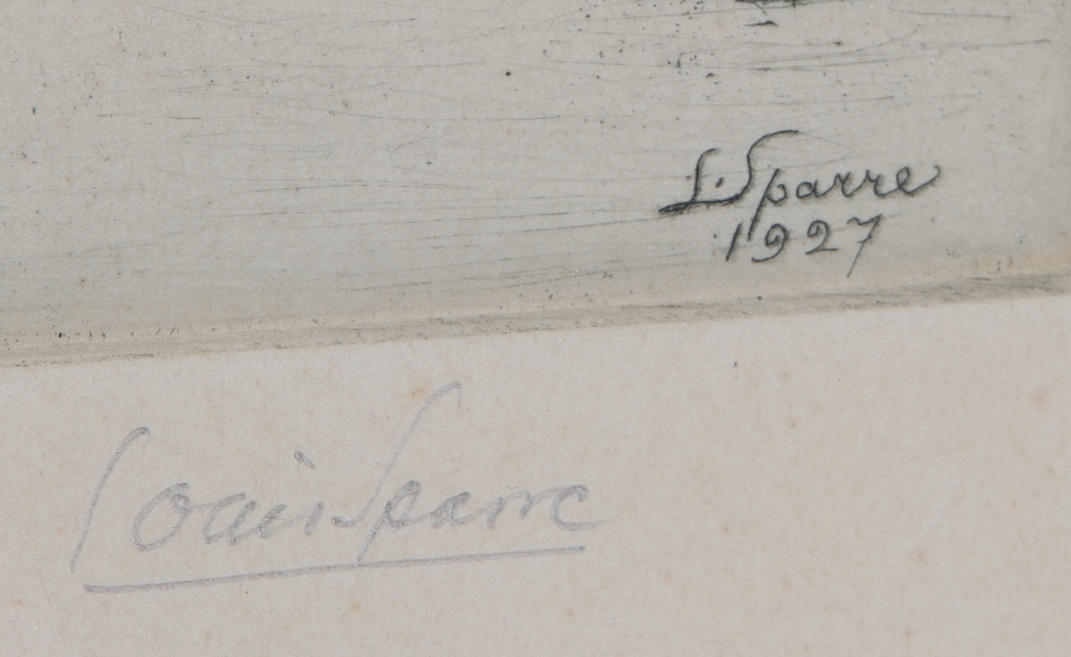 L. Sparre
1927
Louis Sparre